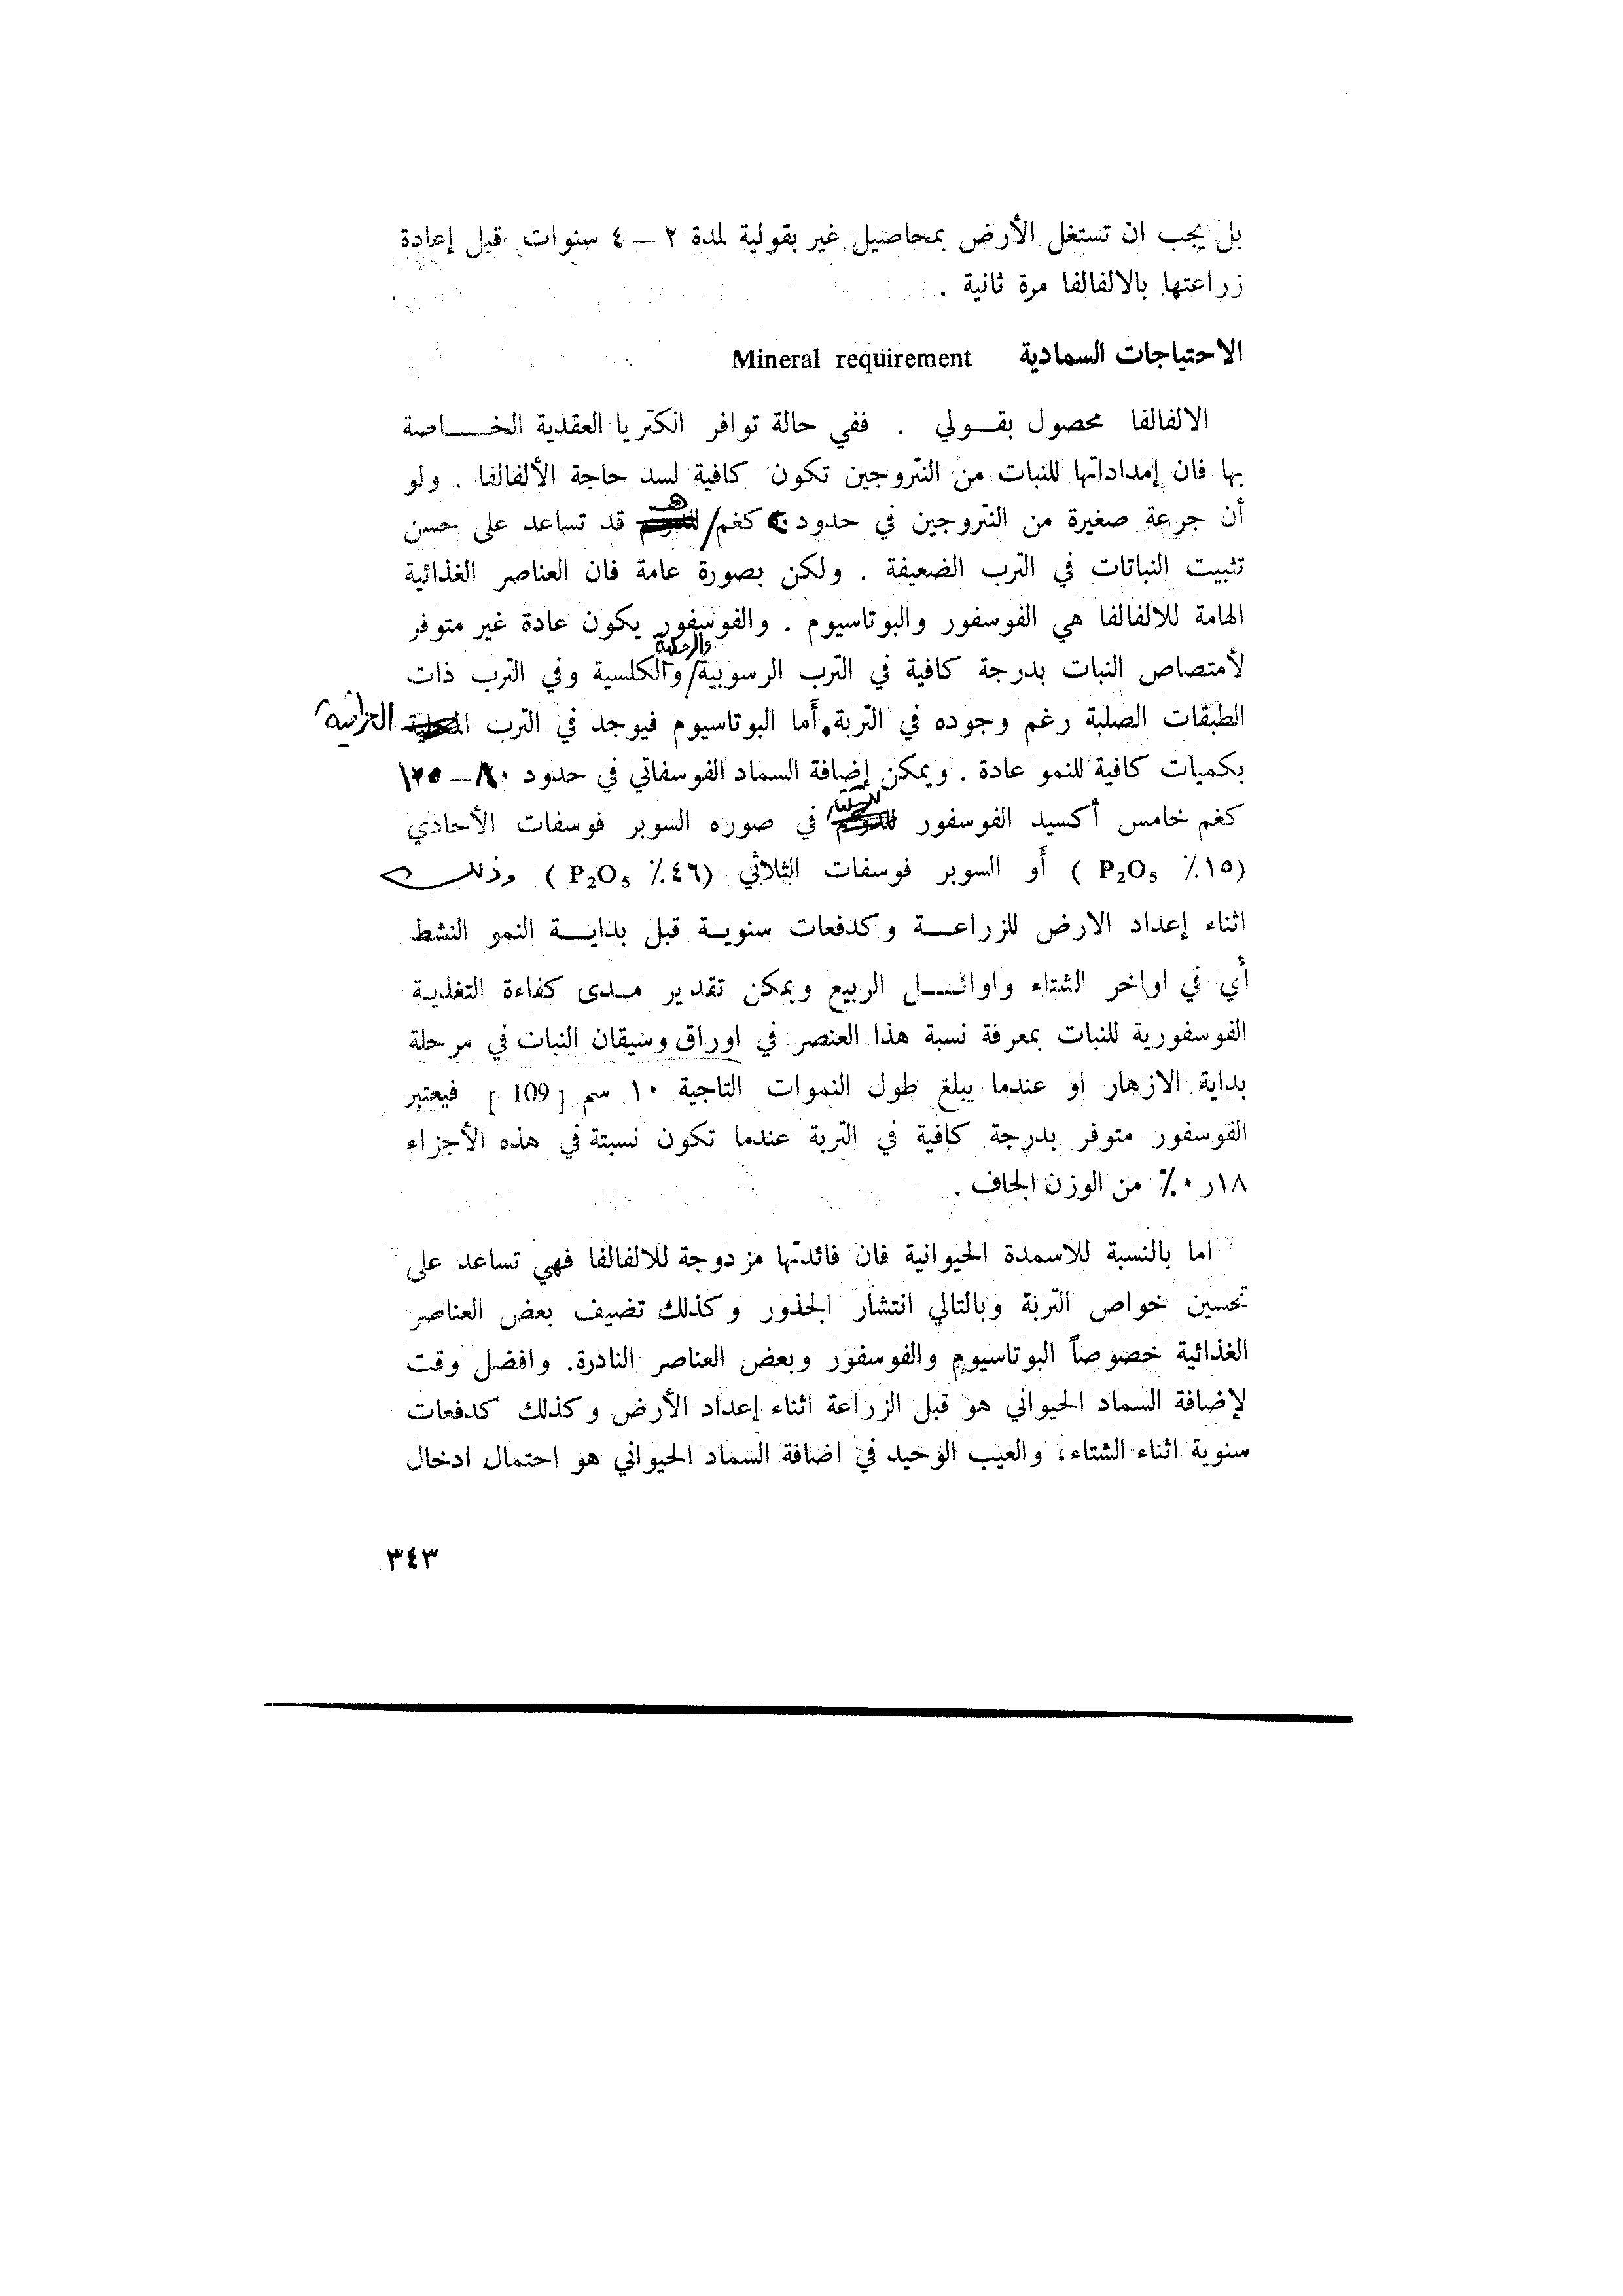 بل يجب ان تستغل الأرض بمحاصيل غير بقولية لمدة ٢ – ٤ سنوات قبل إعادة
زراعتها بالالفالفا مرة ثانية .
الاحتياجات السمادية Mineral requirement
الالفالفا محصول بقـولي . ففي حالة توافر الكتريا العقدية الخـــاصة
بها فان إمداداتها للنبات من النتروجين تكون كافية لسد حاجة الألفالفا . ولو
أن جرعة صغيرة من النتروجين في حدود كغم/ قد تساعد على حسن
تثبيت النباتات في الترب الضعيفة . ولكن بصورة عامة فان العناصر الغذائية
الهامة للالفالفا هي الفوسفور والبوتاسيوم . والفوسفور يكون عادة غير متوفر
لأمتصاص النبات بدرجة كافية في الترب الرسوبية/ والرملية والكلسية وفي الترب ذات
الطبقات الصلبة رغم وجوده في التربة. أما البوتاسيوم فيوجد في الترب العراقية
بكميات كافية للنمو عادة . ويمكن إضافة السماد الفوسفاتي في حدود ٨٠ – ١٢٥
كغم خامس أكسيد الفوسفور في صوره السوبر فوسفات الأحادي
(١٥٪ P₂O₅ ) أو السوبر فوسفات الثلاثي (٤٦٪ P₂O₅ ) وذلك
اثناء إعداد الارض للزراعـــة وكدفعات سنويـة قبل بدايـــة النمو النشط
أي في اواخر الشتاء واوائـــل الربيع ويمكن تقدير مـدى كفاءة التغذيـة
الفوسفورية للنبات بمعرفة نسبة هذا العنصر في اوراق وسيقان النبات في مرحلة
بداية الازهار او عندما يبلغ طول النموات التاجية ١٠ سم [ 109 ] فيعتبر
الفوسفور متوفر بدرجة كافية في التربة عندما تكون نسبتة في هذه الأجزاء
١٨ر٠٪ من الوزن الجاف .
اما بالنسبة للاسمدة الحيوانية فان فائدتها مزدوجة للالفالفا فهي تساعد على
تحسين خواص التربة وبالتالي انتشار الجذور وكذلك تضيف بعض العناصر
الغذائية خصوصاً البوتاسيوم والفوسفور وبعض العناصر النادرة. وافضل وقت
لإضافة السماد الحيواني هو قبل الزراعة اثناء إعداد الأرض وكذلك كدفعات
سنوية اثناء الشتاء، والعيب الوحيد في اضافة السماد الحيواني هو احتمال ادخال
٣٤٣